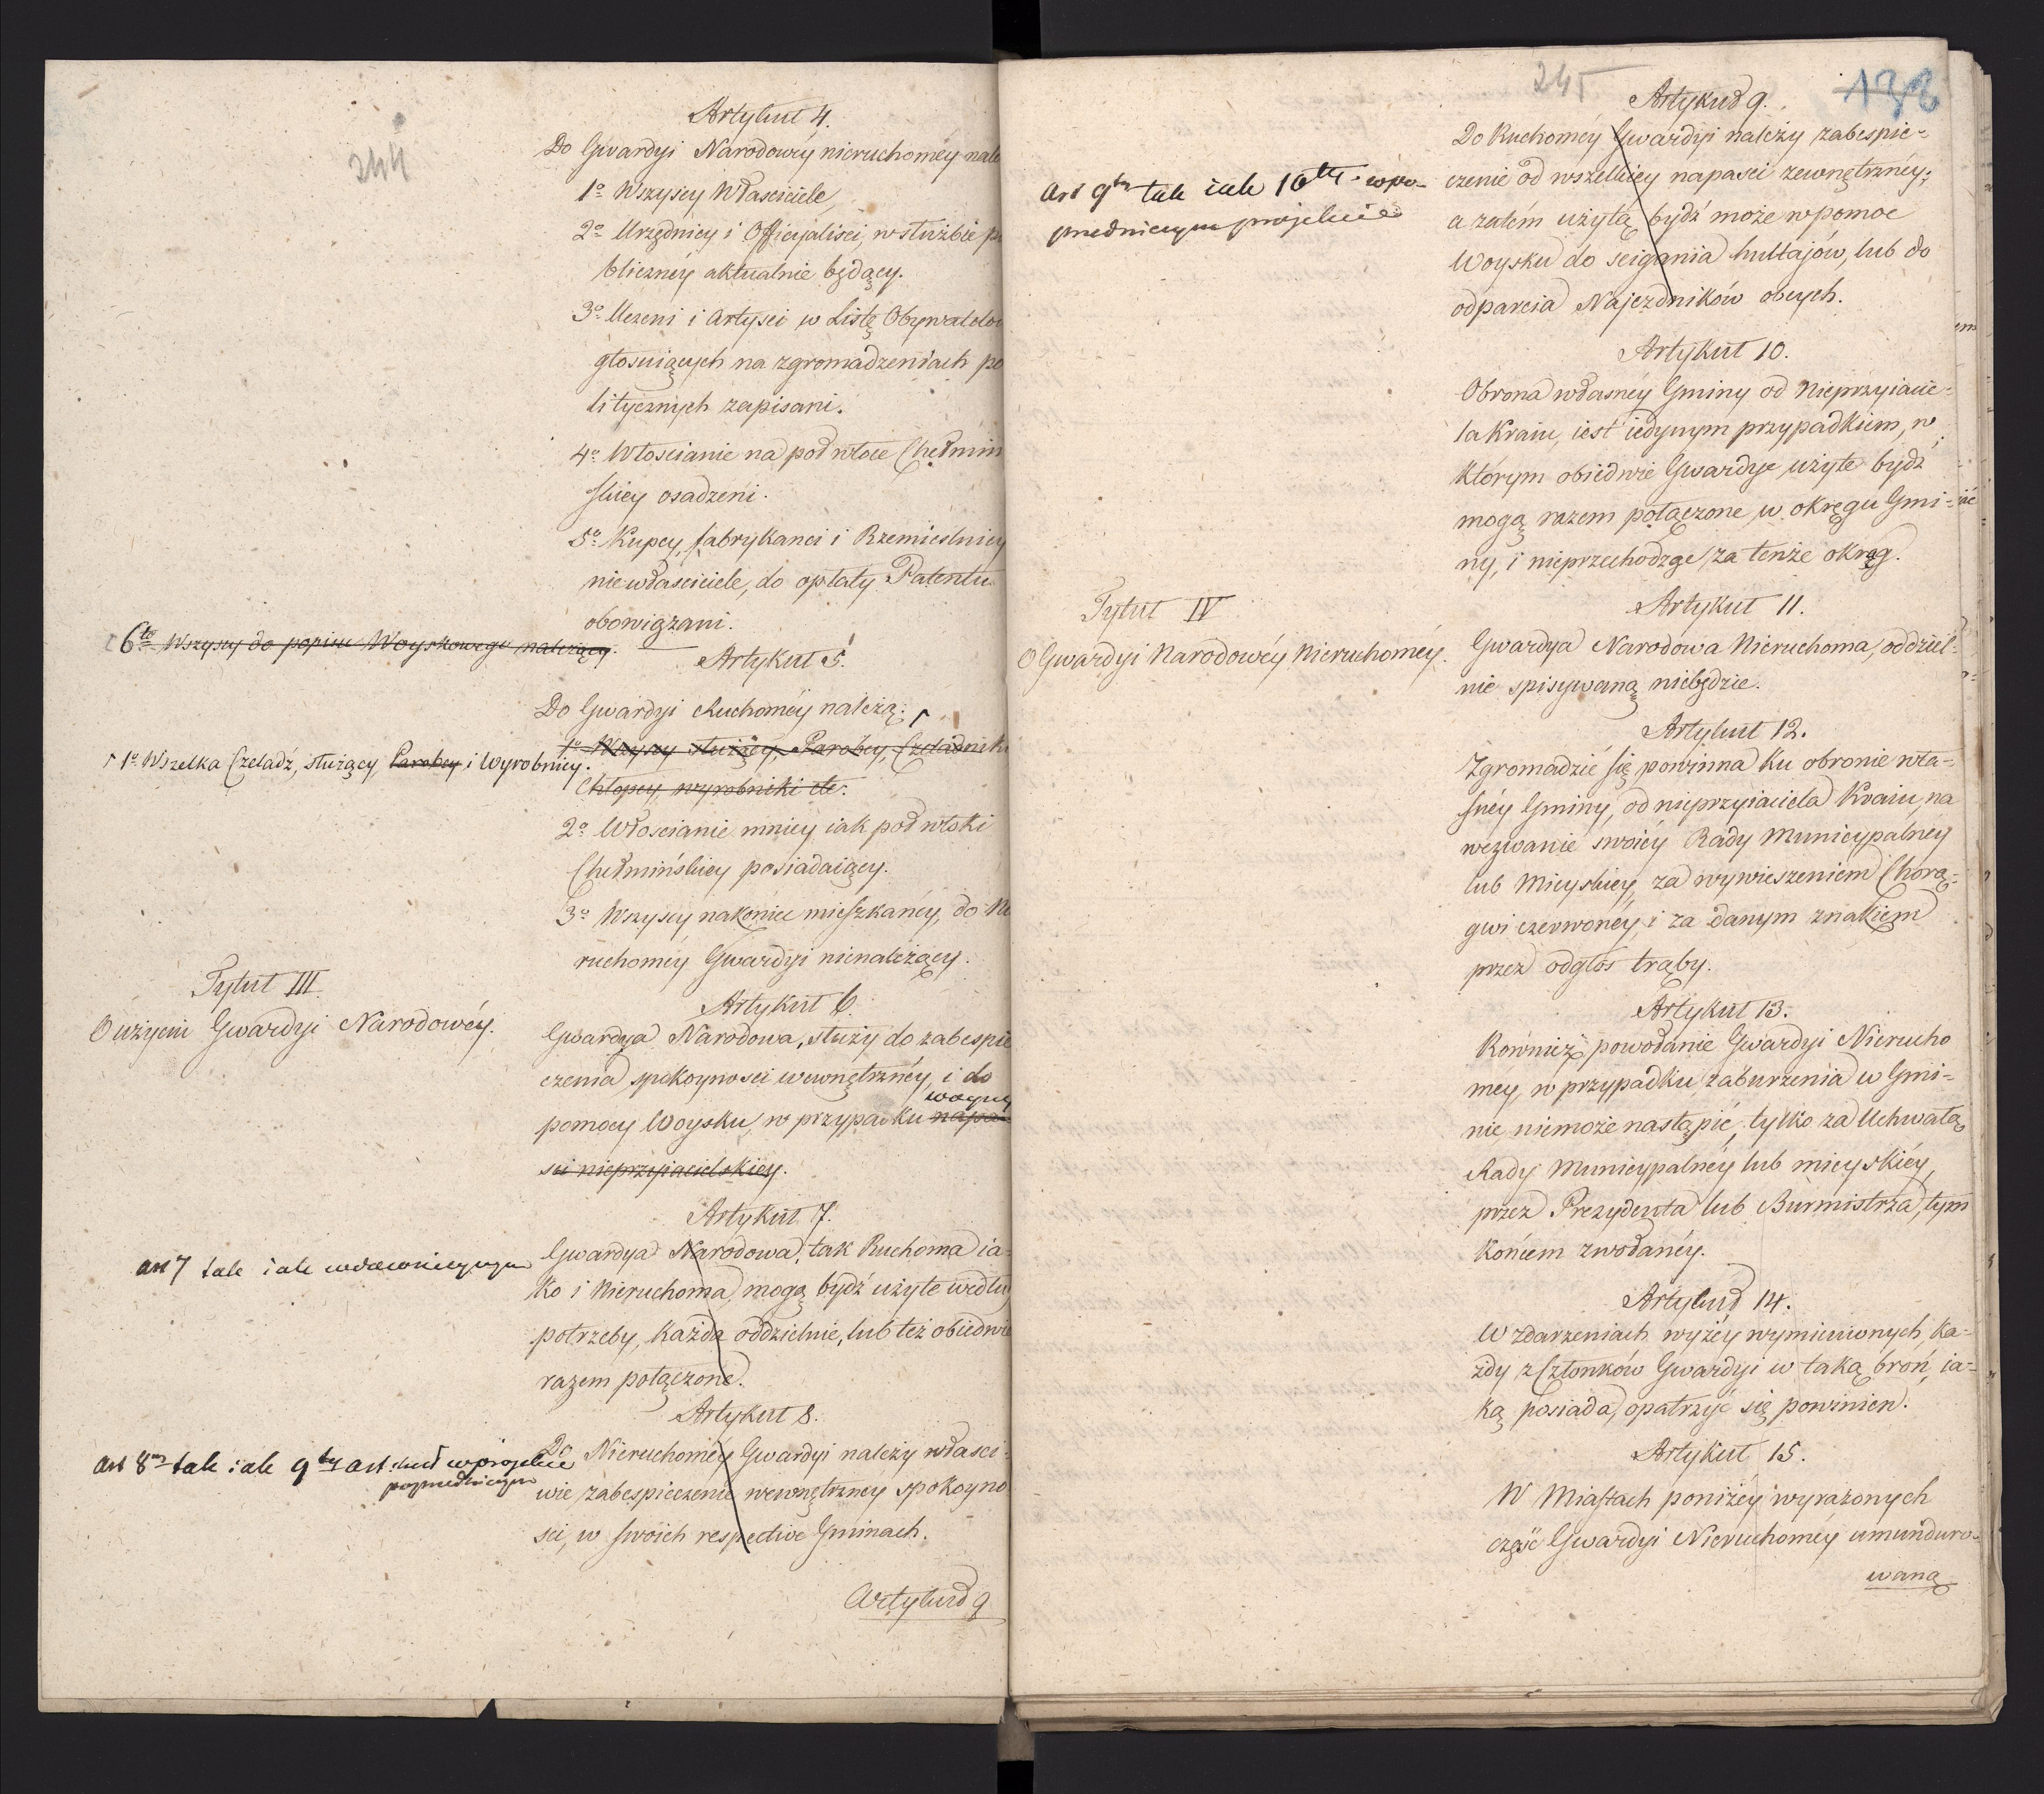 244
Artykuł 4.
Do Gwardyi Narodowéy nieruchoméy nale
1o Wszyscy Właściciele
2o Urzędnicy i Officyaliści, w służbie pu
bliczney aktualnie będący.
3o Uczeni i Artyści w Listę Obywatelow
głosuiących na zgromadzeniach po
litycznych zapisani.
4o Włościanie na pół włóce Chełmin
skiey osadzeni.
5o Kupcy, fabrykanci i Rzemieślnicy
niewłaściciele, do opłaty Patentu
obowiązani.
6to Wszyscy do popisu Woyskowego należący.
Artykuł 5.
Do Gwardyi Ruchoméy należą:
1o Wszyscy służący, Parobcy, Czeladnik
Chłopcy, wyrobniki etc.
1o Wszelka Czeladź, służący Parobcy i Wyrobnicy.
2o Włościanie mniey iak pół włóki
Chełmińskiey posiadaiący.
3o Wszyscy nakoniec mieszkańcy, do Nie
ruchoméy Gwardyi nienależący.
Tytuł III.
O użyciu Gwardyi Narodowéy.
Artykuł 6.
Gwardya Narodowa, służy do zabespie
czenia spokoyności wewnętrznéy, i do
pomocy Woysku, w przypadku napa
woyny
ści nieprzyiacielskiey.
Artykuł 7.
art 7 tak iak
Gwardya Narodowa, tak Ruchoma ia-
ko i Nieruchoma, mogą bydź użyte według
potrzeby, każda oddzielnie, lub też obiedwie
razem połączone.
Artykuł 8.
art 8my tak iak 9ty art. w projekcie
poprzedniczym
Do Nieruchoméy Gwardyi należy właści-
wie zabespieczenie wewnętrznéy spokoyno
ści, w swoich respective Gminach.
Artykuł 9
245
138
Artykuł 9.
art 9ty tak iak 10ty w po-
przedniczym projekcie
Do Ruchoméy Gwardyi należy zabespie-
czenie od wszelkiey napaści zewnętrznéy;
a zatém użytą bydź może w pomoc
Woysku do ścigania hultajów, lub do
odparcia Najezdników obcych.
Artykuł 10.
Obrona własnéy Gminy od Nieprzyiacie-
la Kraiu, iest iedynym przypadkiem, w
którym obiedwie Gwardye użyte bydź
mogą razem połączone w okręgu Gmi-
ny, i nieprzechodząc za tenże okrąg.
Tytuł IV
O Gwardyi Narodowéy Nieruchoméy.
Artykuł 11.
Gwardya Narodowa Nieruchoma, oddziel-
nie spisywaną niebędzie.
Artykuł 12.
Zgromadzić się powinna ku obronie wła-
snéy Gminy, od nieprzyiaciela Kraiu, na
wezwanie swoiéy Rady Municypalnéy
lub Mieyskiey, za wywieszeniem Chorą-
gwi czerwonéy, i za danym znakiem
przez odgłos trąby.
Artykuł 13.
Również powołanie Gwardyi Nierucho
méy, w przypadku zaburzenia w Gmi-
nie, niemoże nastąpić, tylko za Uchwałą
Rady Municypalnéy lub mieyskiéy,
przez Prezydenta lub Burmistrza, tym
końcem zwołanéy.
Artykuł 14.
W zdarzeniach wyżéy wymienionych, ka-
żdy z Członków Gwardyi w taką broń, ia-
ką posiada, opatrzyć się powinien.
Artykuł 15.
W Miastach poniżéy wyrażonych
część Gwardyi Nieruchoméy umunduro-
waną